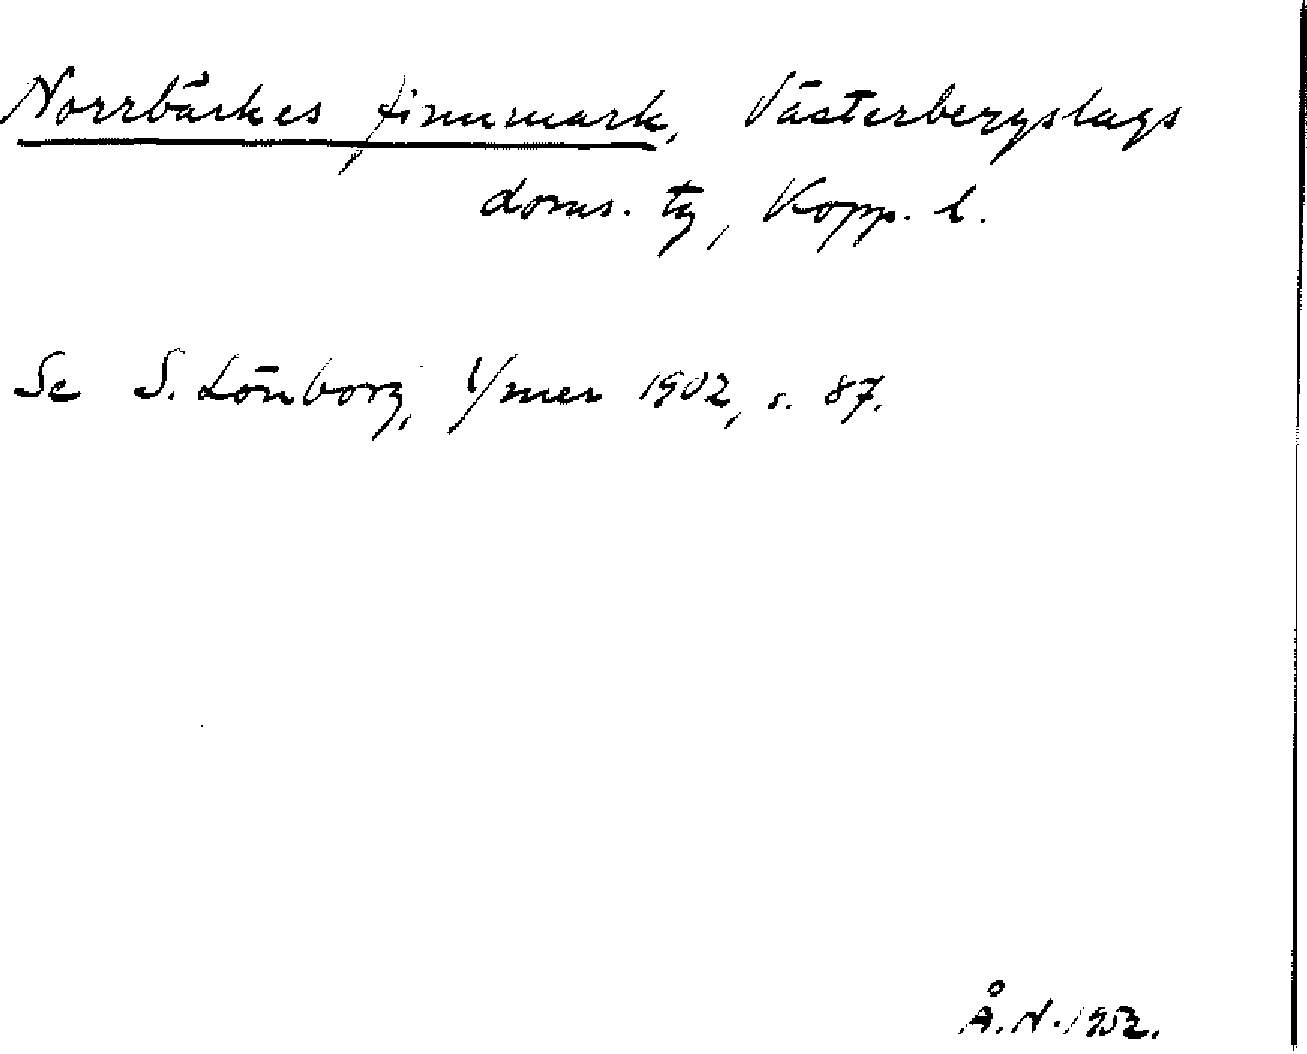 Norrbärkes finnmark, Västerbergslags
doms. tg, Kopp. l.
Se S. Lönborg, Ymer 1902, s. 87.
Å. N. 1952.